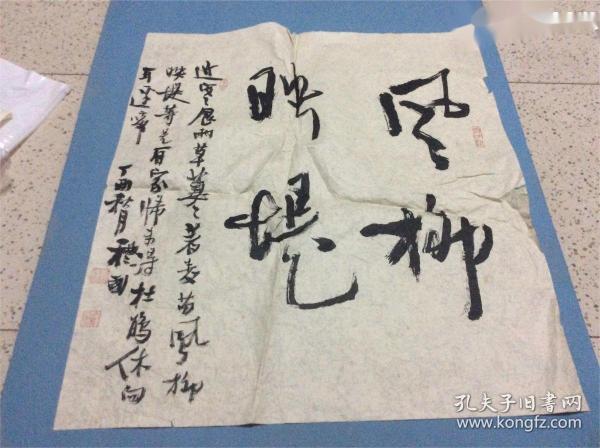 风柳
映堤
近寒食雨草萋々著麦苗风柳
映堤等是有家归未得杜鹃休向
耳边啼
丁酉秋月
孔夫子旧书网
www.kongfz.com